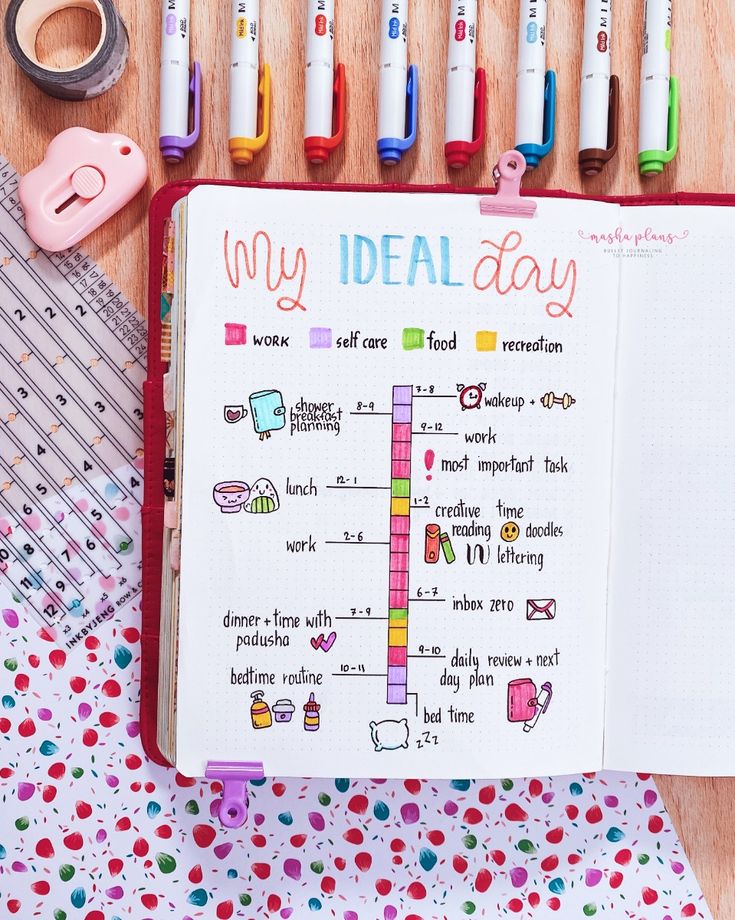 My IDEAL day
masha plans
BULLET JOURNALING
TO HAPPINESS
WORK self care food recreation
7-8 wakeup +
8-9 shower
breakfast
planning
9-12 work
! most important task
12-1 lunch
1-2 creative time
reading doodles
lettering
2-6 work
6-7 inbox zero
7-9 dinner + time with
padusha
9-10 daily review + next
day plan
10-11 bedtime routine
bed time
zzz
INKBYJENG